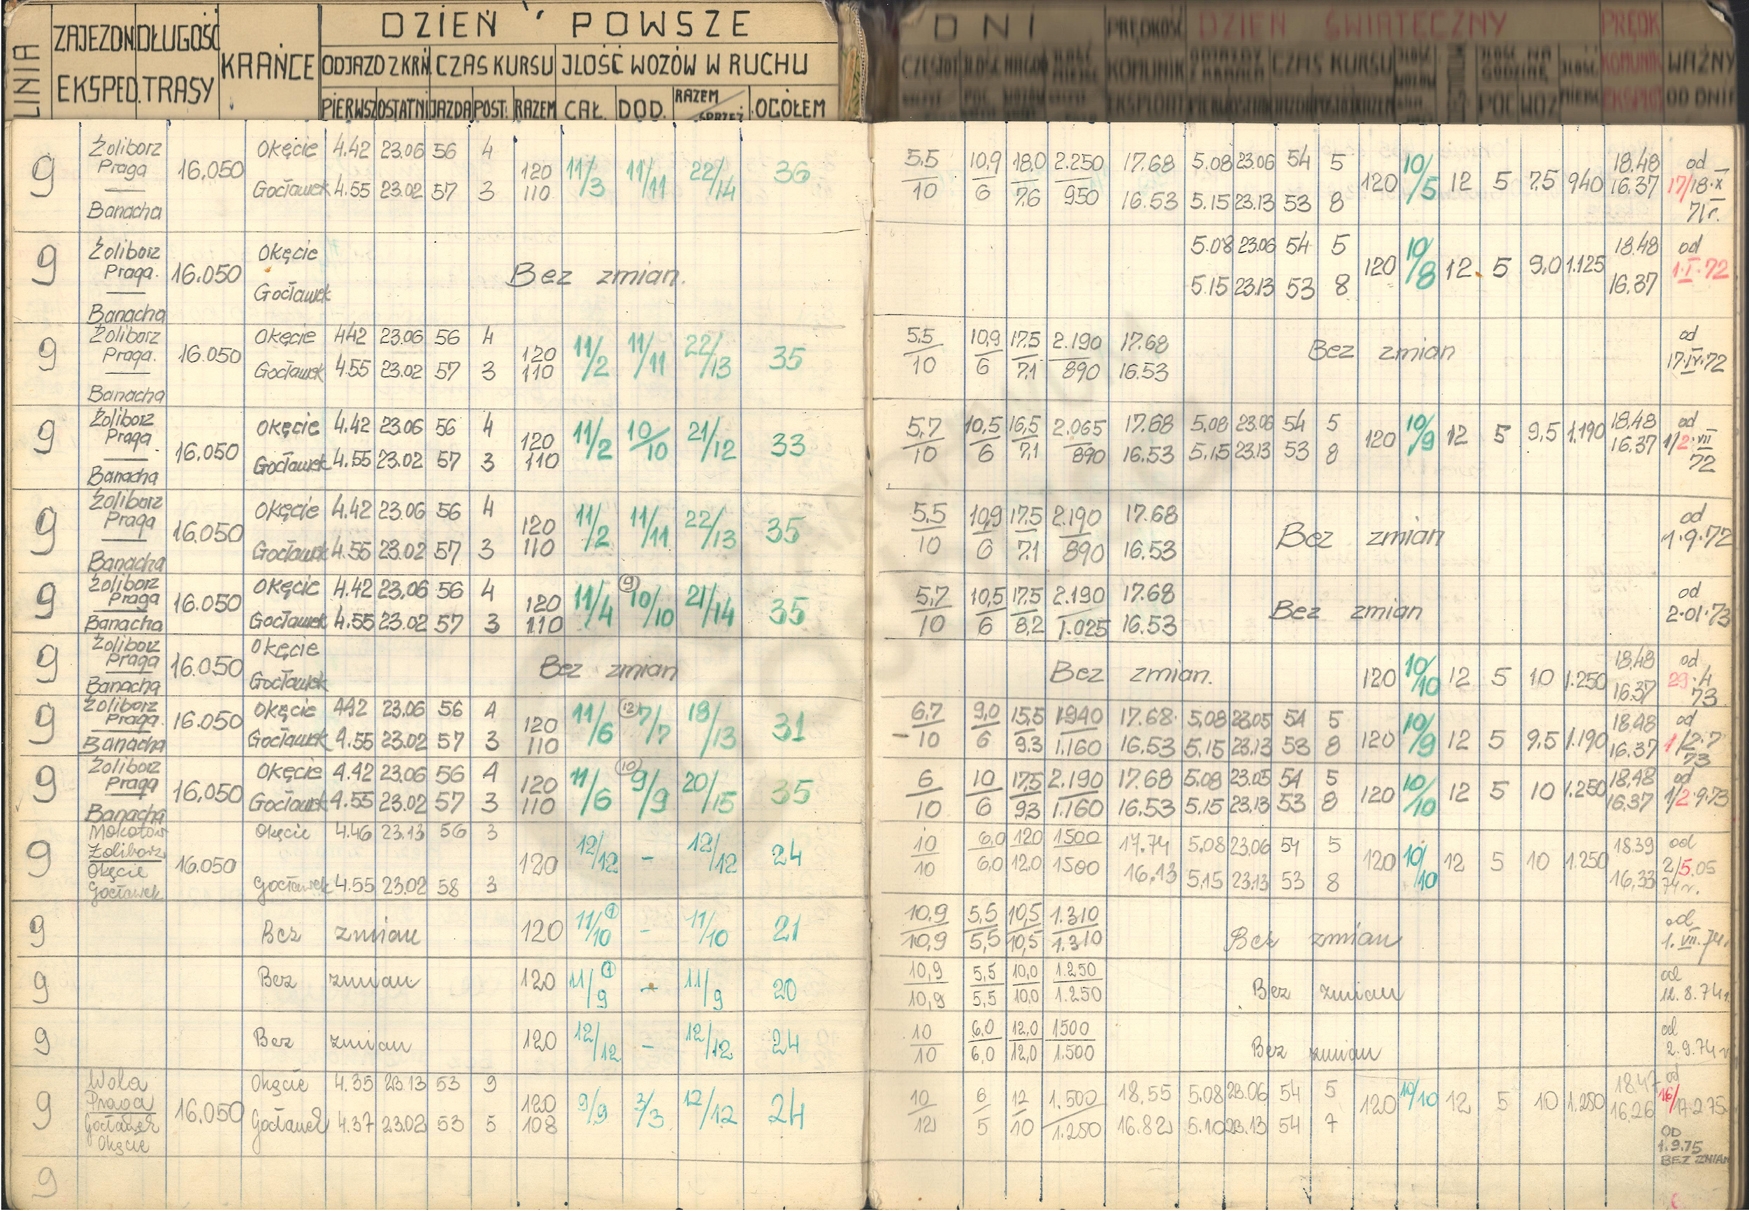 LINIA ZAJEZDN. EKSPED. DŁUGOŚĆ TRASY KRAŃCE DZIEŃ POWSZE DNI PRĘDKOŚĆ KOMUNIK EKSPLOAT DZIEŃ ŚWIĄTECZNY PRĘDK KOMUNIK EKSPLO WAŻNY OD DNIA
ODJAZD Z KRŃ. CZAS KURSU ILOŚĆ WOZÓW W RUCHU CZAS KURSU
PIERWSZ OSTATNI JAZDA POST. RAZEM CAŁ. DOD. RAZEM/SPRZĘŻ. OGÓŁEM POC WOZ
9 Żoliborz Praga Banacha 16,050 Okęcie 4.42 23.06 56 4 120 11/3 11/11 22/14 36 5,5 10,9 18,0 2.250 17.68 5.08 23.06 54 5 120 10/5 12 5 7,5 940 18.48 od
Gocławek 4.55 23.02 57 3 110 10 6 7,6 950 16.53 5.15 23.13 53 8 16.37 17/18.X 71r.
9 Żoliborz Praga. Banacha 16.050 Okęcie Gocławek Bez zmian. 5.08 23.06 54 5 120 10/8 12 5 9,0 1.125 18.48 od
5.15 23.13 53 8 16.37 1.I.72
9 Żoliborz Praga. Banacha 16.050 Okęcie 4.42 23.06 56 4 120 11/2 11/11 22/13 35 5,5 10,9 17,5 2.190 17.68 Bez zmian od
Gocławek 4.55 23.02 57 3 110 10 6 7,1 890 16.53 17.IV.72
9 Żoliborz Praga. Banacha 16,050 Okęcie 4.42 23.06 56 4 120 11/2 10/10 21/12 33 5,7 10,5 16,5 2.065 17.68 5.08 23.06 54 5 120 10/9 12 5 9,5 1.190 18.48 od
Gocławek 4.55 23.02 57 3 110 10 6 7,1 890 16.53 5.15 23.13 53 8 16.37 1/2.VII 72
9 Żoliborz Praga Banacha 16.050 Okęcie 4.42 23.06 56 4 120 11/2 11/11 22/13 35 5,5 10,9 17,5 2.190 17.68 Bez zmian od
Gocławek 4.55 23.02 57 3 110 10 6 7,1 890 16.53 1.9.72
9 Żoliborz Praga Banacha 16.050 Okęcie 4.42 23.06 56 4 120 11/4 (9) 10/10 21/14 35 5,7 10,5 17,5 2.190 17.68 Bez zmian od
Gocławek 4.55 23.02 57 3 110 10 6 8,2 1.025 16.53 2.01.73
9 Żoliborz Praga Banacha 16.050 Okęcie Gocławek Bez zmian Bez zmian. 120 10/10 12 5 10 1.250 18.48 od
16.37 29.4 73
9 Żoliborz Praga. Banacha 16.050 Okęcie 4.42 23.06 56 4 120 11/6 (12) 7/7 18/13 31 6,7 9,0 15,5 1940 17.68 5.08 23.05 54 5 120 10/9 12 5 9,5 1.190 18.48 od
Gocławek 4.55 23.02 57 3 110 10 6 9,3 1.160 16.53 5.15 23.13 53 8 16.37 1/2.7 73
9 Żoliborz Praga Banacha 16,050 Okęcie 4.42 23.06 56 4 120 11/6 (10) 9/9 20/15 35 6 10 17,5 2.190 17.68 5.08 23.05 54 5 120 10/10 12 5 10 1.250 18.48 od
Gocławek 4.55 23.02 57 3 110 10 6 9,3 1.160 16.53 5.15 23.13 53 8 16.37 1/2.9.73
9 Mokotów Żoliborz Okęcie Gocławek 16.050 Okęcie 4.46 23.13 56 3 120 12/12 - 12/12 24 10 6,0 12,0 1500 17.74 5.08 23.06 54 5 120 10/10 12 5 10 1.250 18.39 od
Gocławek 4.55 23.02 58 3 10 6,0 12,0 1500 16,13 5.15 23.13 53 8 16,33 2/5.05 74r.
9 Bez zmian 120 11/10 (1) - 11/10 21 10,9 5,5 10,5 1.310 Bez zmian od
10,9 5,5 10,5 1.310 1.VII.74r.
9 Bez zmian 120 11/9 (1) - 11/9 20 10,9 5,5 10,0 1.250 Bez zmian od
10,9 5,5 10,0 1.250 12.8.74r.
9 Bez zmian 120 12/12 - 12/12 24 10 6,0 12,0 1500 Bez zmian od
10 6,0 12,0 1.500 2.9.74r
9 Wola Praga Gocławek Okęcie 16,050 Okęcie 4.35 23.13 53 9 120 9/9 3/3 12/12 24 10 6 12 1.500 18,55 5.08 23.06 54 5 120 10/10 12 5 10 1.250 18.47 od
Gocławek 4.37 23.02 53 5 108 12 5 10 1.250 16.82 5.10 23.13 54 7 16,26 16/17.2.75
OD 1.9.75 BEZ ZMIAN
9